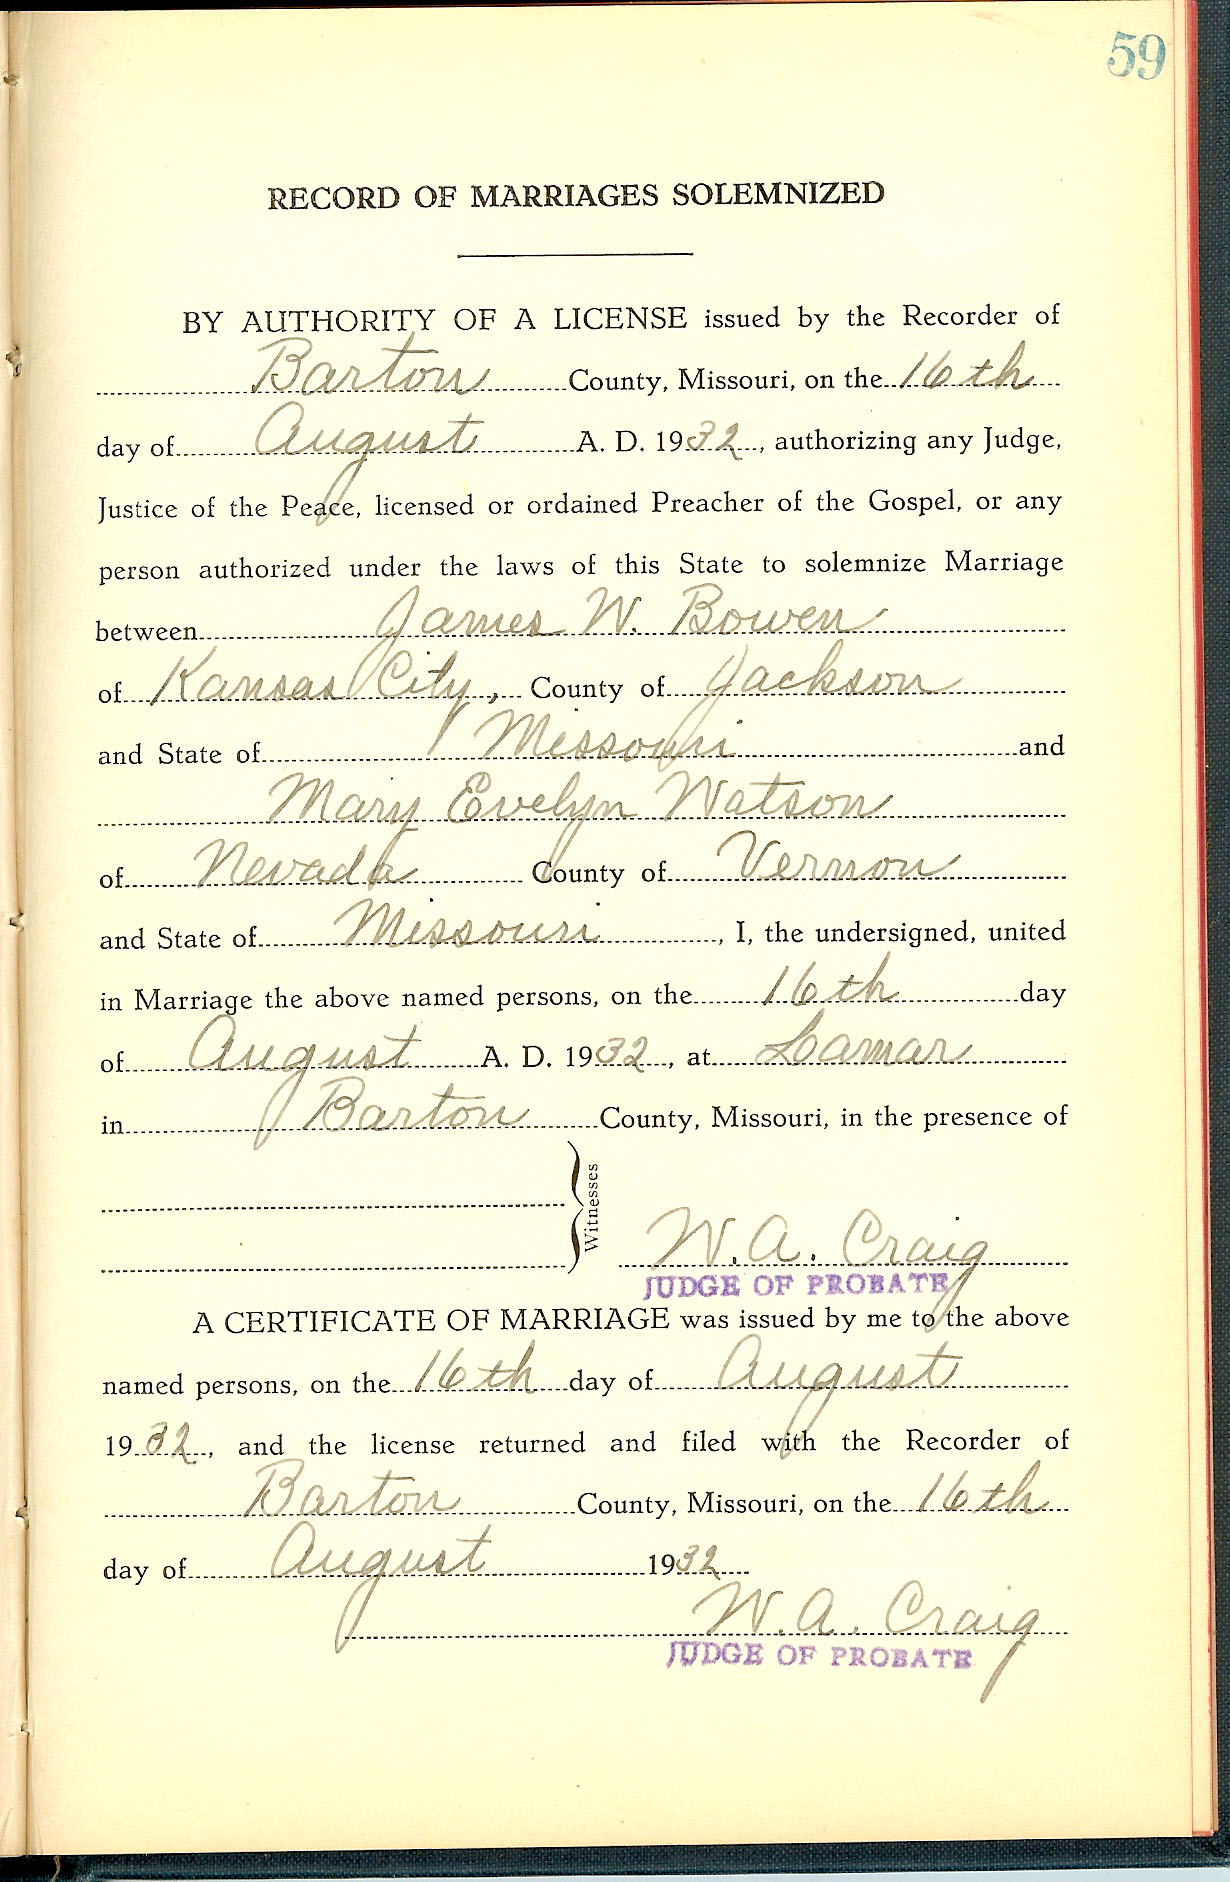 59
RECORD OF MARRIAGES SOLEMNIZED
BY AUTHORITY OF A LICENSE issued by the Recorder of
Barton County, Missouri, on the 16th
day of August A. D. 1932, authorizing any Judge,
Justice of the Peace, licensed or ordained Preacher of the Gospel, or any
person authorized under the laws of this State to solemnize Marriage
between James W. Bowen
of Kansas City, County of Jackson
and State of Missouri and
Mary Evelyn Watson
of Nevada County of Vernon
and State of Missouri, I, the undersigned, united
in Marriage the above named persons, on the 16th day
of August A. D. 1932, at Lamar
in Barton County, Missouri, in the presence of
Witnesses
W. A. Craig
JUDGE OF PROBATE
A CERTIFICATE OF MARRIAGE was issued by me to the above
named persons, on the 16th day of August
1932, and the license returned and filed with the Recorder of
Barton County, Missouri, on the 16th
day of August 1932
W. A. Craig
JUDGE OF PROBATE